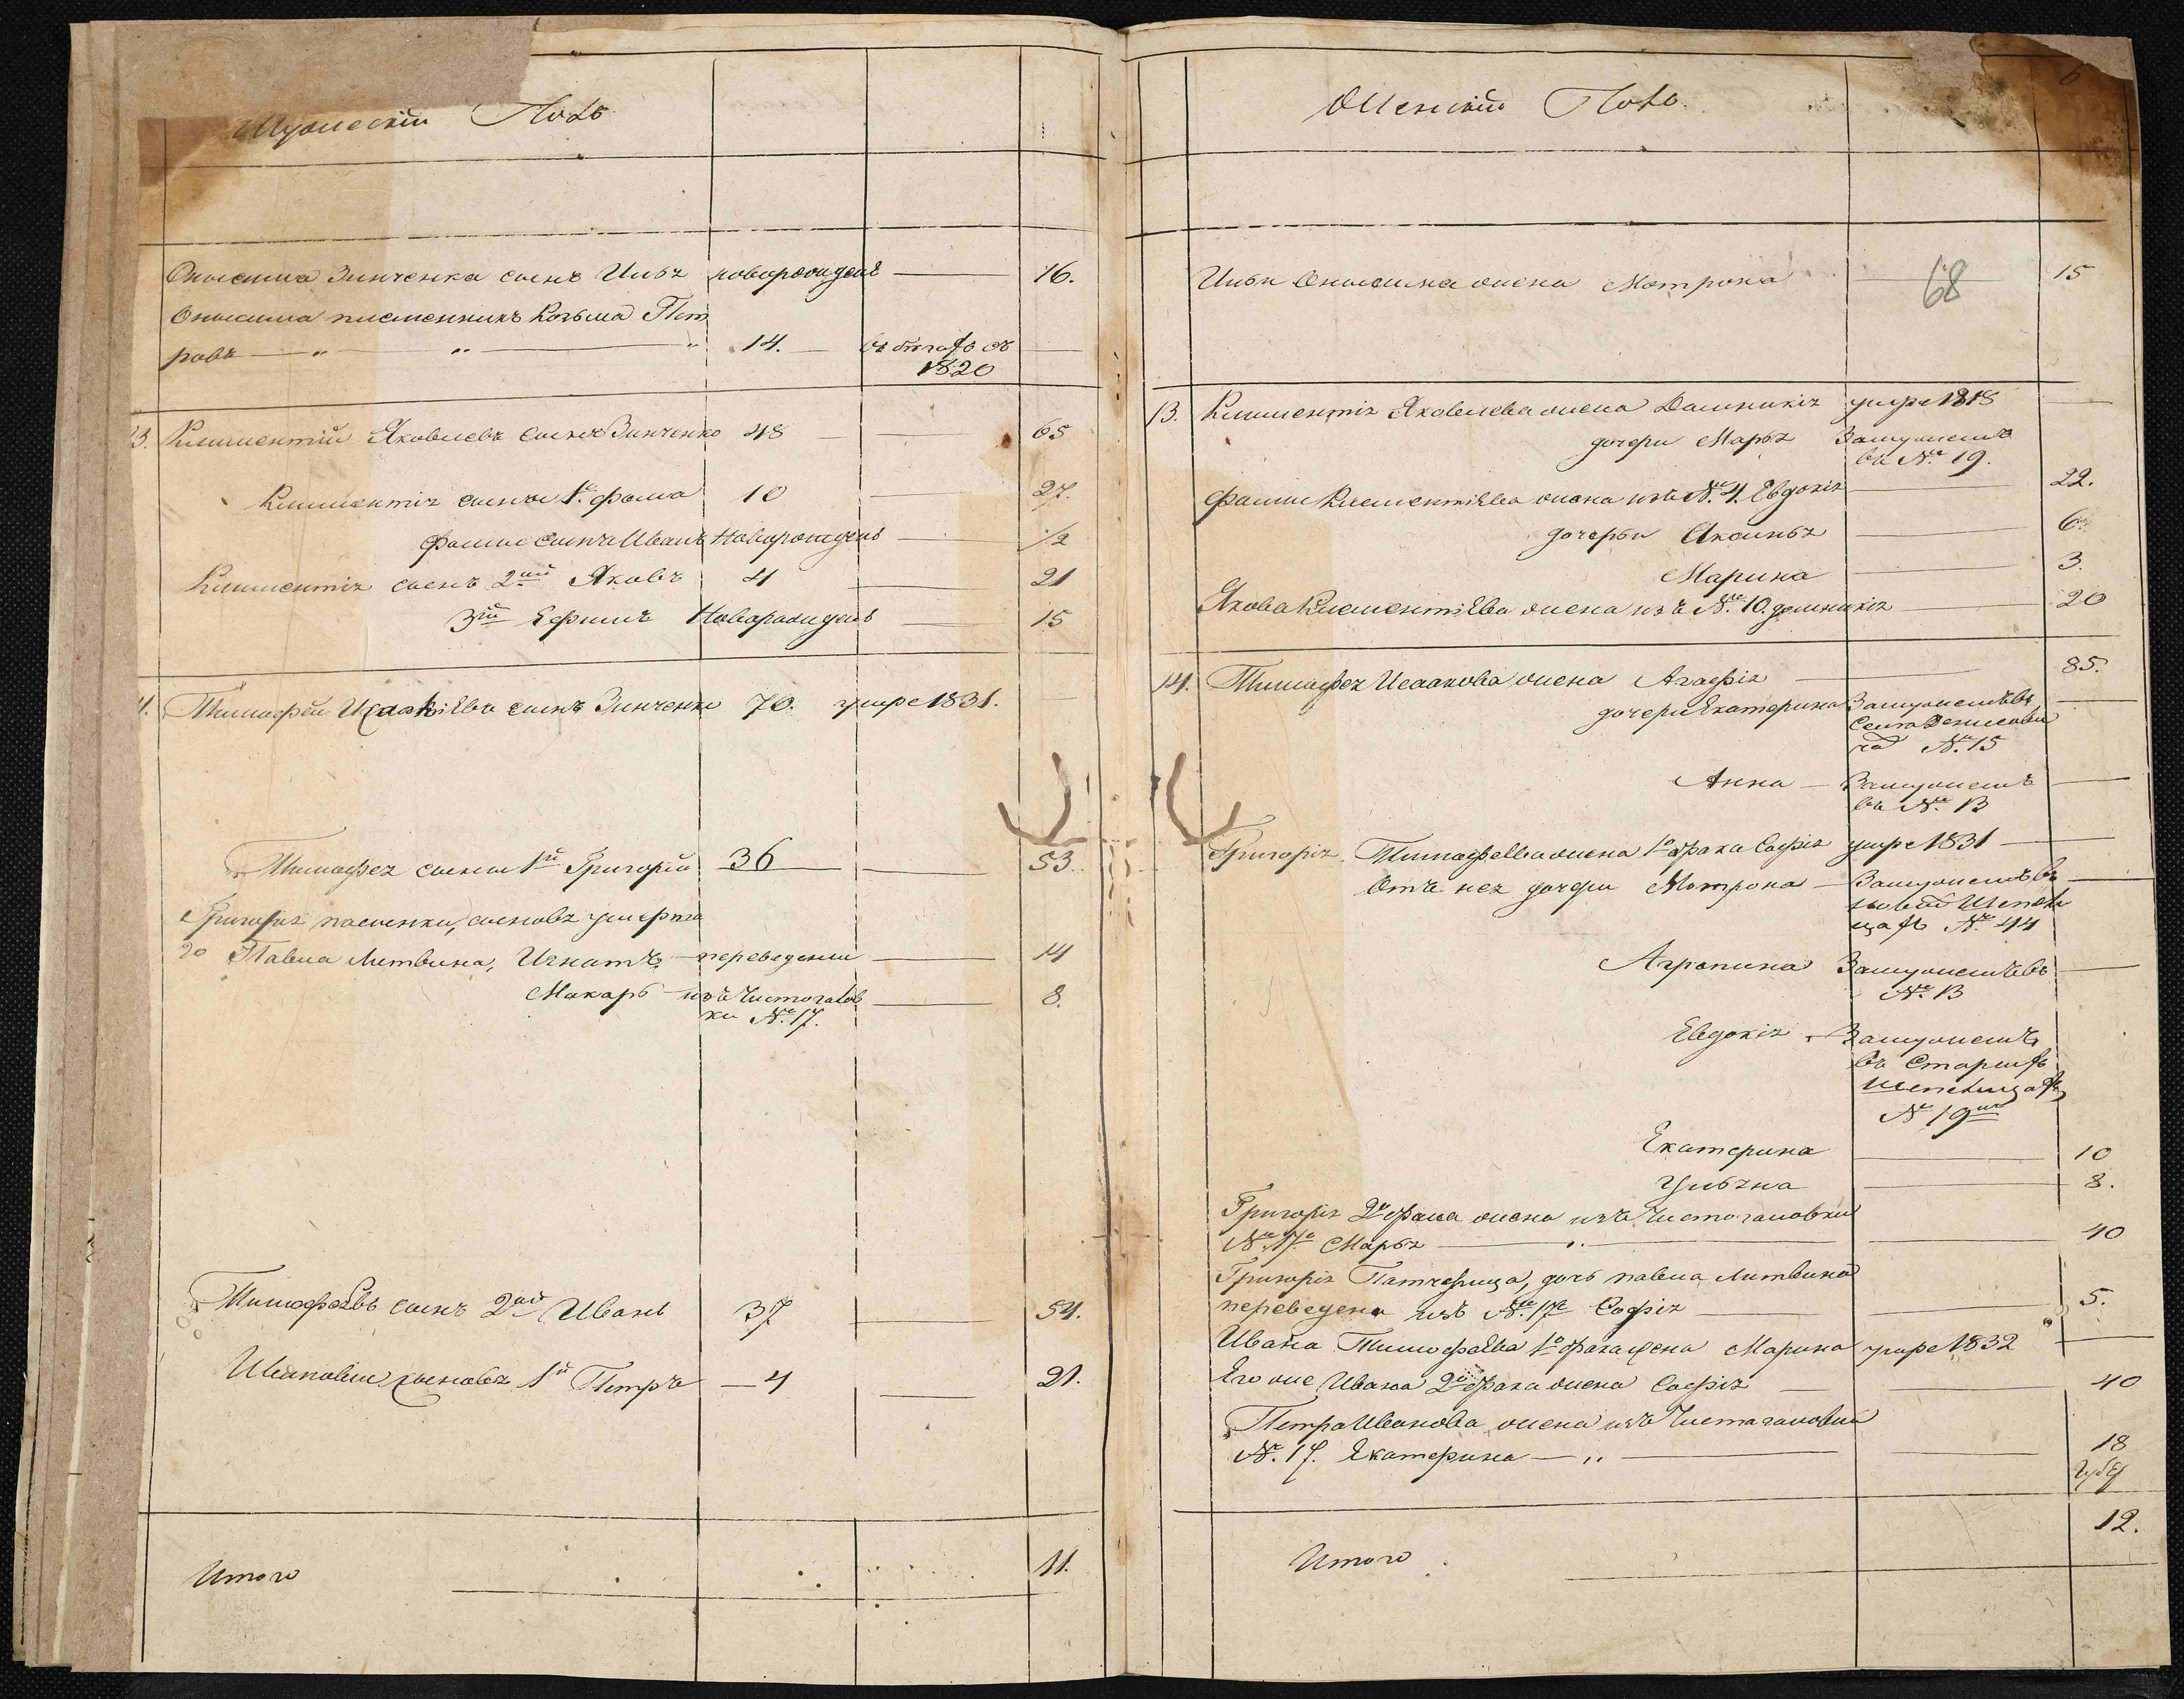 Мужескій Полъ
Онисима Зинченка сынъ Илья новорожденъ 16.
Онисима племенникъ Козьма Пет
ровъ — " — " — " 14. въ бѣгахъ съ
1820
13. Климентий Яковлевъ сынъ Зинченко 48 65
Климентія сынъ 1й Фома 10 27.
Фомы сынъ Иванъ Новорожденъ 1/2
Климентія сынъ 2ий Яковъ 4 21
3ій Ефимъ Новорожденъ 15
14. Тимофей Исакіевъ сынъ Зинченко 70. умре 1831.
Тимофея сыны 1й Григорій 36 53.
Григорія пасынки, сыновья умерша
го Павла Литвина, Игнатъ переведены 14
Макаръ изъ Чистогалов 8.
ки №17.
Тимофѣевъ сынъ 2ий Иванъ 37 54.
Ивановы сыновья 1й Петръ — 4 21.
Итого 11.
Женскій Полъ.
6
68
Ильи Онисима жена Мотрона 15
13. Климентія Яковлева жена Домникія умре 1818
дочери Марья Замужемъ
въ № 19.
Фомы Климентіева жена изъ № 4. Евдокія 22.
дочери Аксинья 6
Марина 3.
Якова Климентіева жена изъ № 10. Домникія 20
14. Тимофея Исаакова жена Агафія 85.
дочери Екатерина Замужемъ въ
№ 15
Анна — Замужемъ
въ № 13
Григорія Тимофеева жена 1го брака Софія умре 1831
Отъ нея дочери Мотрона — Замужемъ въ
новой Шепели
цахъ № 44
Агрепина Замужемъ въ
№ 13
Евдокія Замужемъ
въ Старыхъ
Шепелицахъ
№ 19
Екатерина 10
Ульяна 8.
Григорія 2го брака жена изъ Чистогаловки
№ 17го Марья 40
Григорія Патчерица, дочь павла Литвина
переведена изъ № 17го Софія 5.
Ивана Тимофѣева 1го брака жена Марина умре 1832
Его же Ивана 2го брака жена Софія 40
Петра Иванова жена изъ Чистагаловки
№. 17. Екатерина — " — 18
Итого 12.